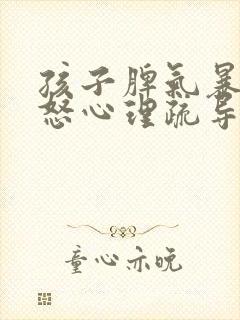 孩子脾气暴
怒心理疏导
童心亦晚